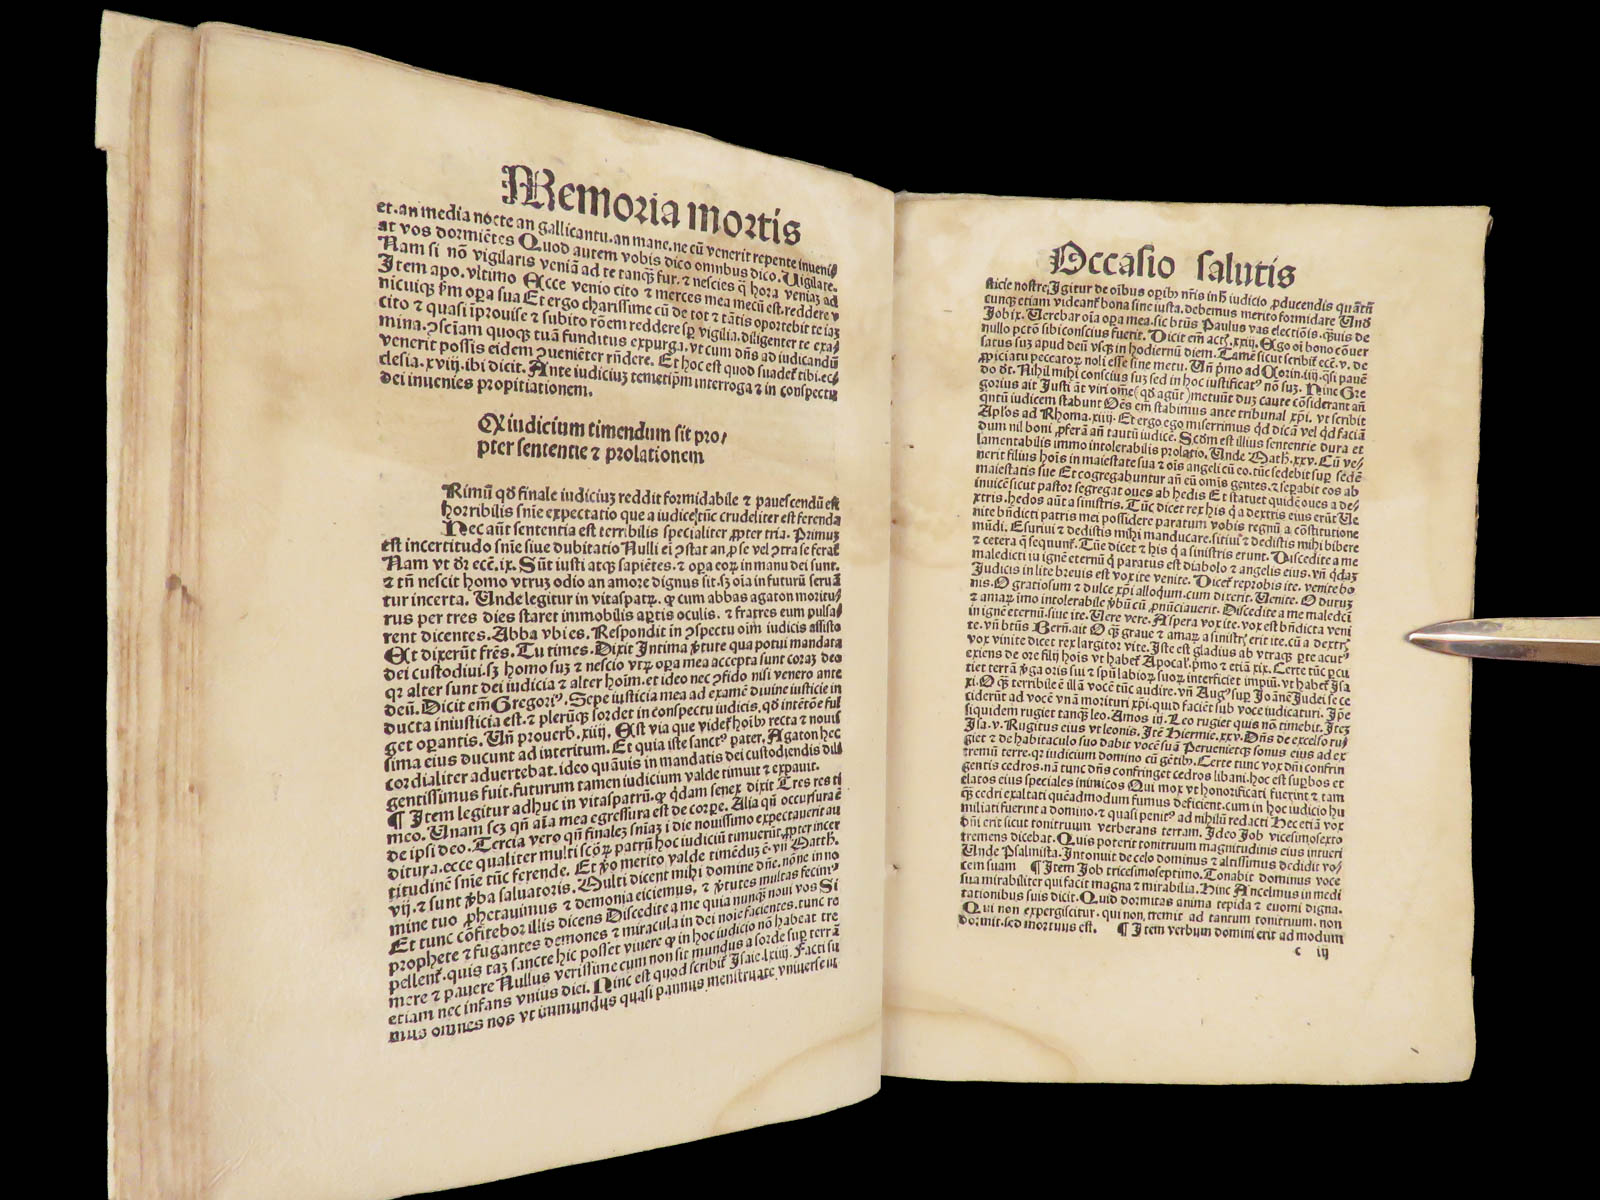 Memoria mortis
et.an media nocte an gallicantu.an mane.ne cū venerit repente inueni/
at vos dormiētes Quod autem vobis dico omnibus dico.Uigilate.
Nam si nō vigilaris veniā ad te tanqȝ fur.⁊ nescies q̄ hora veniaȝ ad
Item apo.vltimo Ecce venio cito ⁊ merces mea mecū est.reddere v
nicuiqȝ ꝑm oꝑa sua Et ergo charissime cū de tot ⁊ tātis oportebit te iaȝ
cito ⁊ quasi īprouise ⁊ subito rōem reddere sꝑ vigila.diligenter te exa/
mina.ꝯsciam quoqȝ tuā funditus expurga.vt cum dn̄s ad iudicandū
venerit possis eidem ꝯueniēter rn̄dere. Et hoc est quod suadet tibi.ec/
clesia.xviij.ibi dicit. Ante iudiciuȝ temetipm̄ interroga ⁊ in conspectu
dei inuenies propitiationem.
Q iudicium timendum sit pro/
pter sententie ⁊ prolationem
Rimū qd̄ finale iudiciuȝ reddit formidabile ⁊ pauescendū est
horribilis sn̄ie expectatio que a iudice tūc crudeliter est ferenda
Nec aūt sententia est terribilis specialiter ꝓpter tria. Primuȝ
est incertitudo sn̄ie siue dubitatio Nulli ei ꝯstat an ꝓ se vel ꝯtra se ferat
Nam vt dr̄ ecc̄.ix. Sūt iusti atqȝ sapiētes.⁊ oꝑa eoꝝ in manu dei sunt.
⁊ tn̄ nescit homo vtruȝ odio an amore dignus sit.sȝ oīa in futurū serua
tur incerta. Unde legitur in vitaspatꝝ. ꝙ cum abbas agaton moritu/
rus per tres dies staret immobilis aꝑtis oculis. ⁊ fratres eum pulsa/
rent dicentes.Abba vbi es. Respondit in ꝯspectu oīm iudicis assisto
Et dixerūt frēs. Tu times. Dixit Intima v̄ture qua potui mandata
dei custodiui.sȝ homo suȝ ⁊ nescio vtꝝ oꝑa mea accepta sunt coraȝ deo
qꝛ alter sunt dei iudicia ⁊ alter hoīm.et ideo nec ꝯfido nisi venero ante
deū. Dicit em̄ Gregori⁹. Sepe iusticia mea ad examē diuine iusticie in
ducta iniusticia est.⁊ plerūqȝ sordet in conspectu iudicis, qd̄ intētōe ful
get oꝑantis. Un̄ prouerb.xiiij. Est via que videt hoībȝ recta ⁊ nouis
sima eius ducunt ad interitum. Et quia iste sanct⁹ pater. Agaton hec
cordialiter aduertebat.ideo quāuis in mandatis dei custodiendis dili
gentissimus fuit.futurum tamen iudicium valde timuit ⁊ expauit.
¶ Item legitur adhuc in vitaspatrū.ꝙ qdam senex dixit Tres res ti
meo. Unam scȝ qn̄ aīa mea egressura est de corꝑe. Alia qn̄ occursura ē
de ipsi deo. Tercia vero qn̄ finaleȝ sn̄iaȝ ī die nouissimo expectauerit au
ditura.ecce qualiter multi scōꝝ patrū hoc iudiciū timuerūt ꝓpter incer
titudinē sn̄ie tūc ferende. Et v̄o merito valde timēduȝ ē.vn̄ Matth.
vij.⁊ sunt v̄ba saluatoris. Multi dicent mihi domine dn̄e.nōne in no
mine tuo ꝓphetauimus ⁊ demonia eiciemus, ⁊ v̄tutes multas fecim⁹
Et tunc cōfitebor illis dicens Discedite a me quia nunqȝ noui vos Si
prophete ⁊ fugantes demones ⁊ miracula in dei noīe facientes.tunc re
pellent.quis taȝ sancte hic posset viuere ꝙ in hoc iudicio nō habeat tre
mere ⁊ pauere Nullus verissime cum non sit mundus a sorde suꝑ terrā
etiam nec infans vnius diei. Hinc est quod scribit Isaie.lxiiij. Facti su
mus omnes nos vt immundus quasi pannus menstruate vniuerse iu
Occasio salutis
sticie nostre.Igitur de oībus oꝑibȝ nr̄is inh̄ iudicio ꝓducendis quātū
cunqȝ etiam videant̄ bona sine iusta.debemus merito formidare Und̄
Job ix. Uerebar oīa oꝑa mea.sic btūs Paulus vas electiōis.qȝuis de
nullo pctō sibi conscius fuerit. Dicit em̄ act.xxiij. Ego oī bono cōuer
satus suȝ apud deū vsqȝ in hodiernū diem.Tamē sicut scribit ecc̄.v.de
ꝓpiciatu peccatoꝝ noli esse sine metu. Un̄ p̄mo ad Corin.iiij.qsi pauē
do dt̄. Nihil mihi conscius suȝ sed in hoc iustificat⁹ nō suȝ. Hinc Gre
gorius ait Justi āt viri om̄e(qd̄ agūt)metuūt duȝ caute cōsiderant an̄
qntū iudicem stabunt Oēs em̄ stabimus ante tribunal xp̄i. vt scribit
Apl̄os ad Rhoma.xiiij. Et ergo ego miserrimus qd̄ dicā vel qd̄ faciā
dum nil boni ꝓferā an̄ tantū iudicē. Scdm̄ est illius sententie dura et
lamentabilis immo intolerabilis prolatio. Unde Math̄.xxv. Cū ve/
nerit filius hoīs in maiestate sua ⁊ oīs angeli cū eo.tūc sedebit suꝑ sedē
maiestatis sue Et cōgregabuntur an̄ eū omīs gentes.⁊ seꝑabit eos ab
inuicē sicut pastor segregat oues ab hedis Et statuet quidē oues a de/
xtris.hedos aūt a sinistris. Tūc dicet rex his q̄ a dextris eius erūt Ue
nite bn̄dicti patris mei possidere paratum vobis regnū a cōstitutione
mūdi. Esuriui ⁊ dedistis mihi manducare.sitiui ⁊ dedistis mihi bibere
⁊ cetera q̄ sequunt̄. Tūc dicet ⁊ his q̄ a sinistris erunt. Discedite a me
maledicti in ignē eternū q̄ paratus est diabolo ⁊ angelis eius.vn̄ qdaȝ
Judicis in lite breuis est vox ite venite. Dicet̄ reprobis ite.venite bo
nis.O gratiosum ⁊ dulce xp̄i alloqm.cum dixerit.Uenite. O duruȝ
⁊ amaꝝ īmo intolerabile v̄bū cū ꝓnūciauerit. Discedite a me maledcti
in ignē eternū.siue ite. Uere vere. Aspera vox ite.vox est bn̄dicta veni
te.vn̄ btūs Bern̄.ait O qȝ graue ⁊ amaꝝ a sinistrꝭ erit ite.cū a dextrꝭ
vox vinite dicet rex largitor vite.Iste est gladius ab vtraqȝ ꝑte acut⁹
exiens de ore filij hoīs vt habet̄ Apocal.p̄mo ⁊ etiā xix. Certe tūc ꝑcu
tiet terrā v̄ga oris sui ⁊ sp̄u labioꝝ suoꝝ interficiet impiū.vt habet̄ Isa
xi.O qȝ terribile ē illā vocē tūc audire.vn̄ Aug⁹ suꝑ Joānē Judei se ce
ciderūt ad vocē vnā morituri xp̄i.quid faciēt sub voce iudicaturi. Ip̄e
siquidem rugiet tanqȝ leo. Amos iij. Leo rugiet quis nō timebit. Iteȝ
Isa.v. Rugitus eius vt leonis. Itē Hiermie.xxv. Dn̄s de excelso ru/
giet ⁊ de habitaculo suo dabit vocē suā Peruenietqȝ sonus eius ad ex
tremū terre.qꝛ iudicium domino cū gētibȝ. Certe tunc vox dn̄i confrin
gentis cedros.nā tunc dn̄s confringet cedros libani.hoc est suꝑbos et
elatos eius speciales inimicos Qui mox vt honorificati fuerint ⁊ tam
qȝ cedri exaltati quēadmodum fumus deficient.cum in hoc iudicio hu
miliati fuerint a domino.⁊ quasi penit⁹ ad nihilū redacti Hec etiā vox
dn̄i erit sicut tonitruum verberans terram. Ideo Job vicesimosexto
tremens dicebat. Quis poterit tonitruum magnitudinis eius intueri
Unde Psalmista. Intonuit de celo dominus ⁊ altissimus dedidit vo/
cem suam ¶ Item Job tricesimoseptimo. Tonabit dominus voce
sua mirabiliter qui facit magna ⁊ mirabilia. Hinc Ancelmus in medi
tationibus suis dicit. Quid dormitas anima tepida ⁊ euomi digna.
Qui non expergiscitur.qui non tremit ad tantum tonitruum. non
dormit.sed mortuus est. ¶ Item verbum domini erit ad modum
c iij